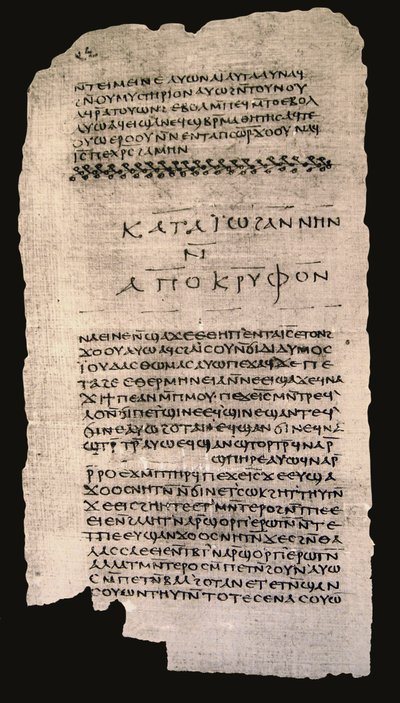 ⲛⲧⲉⲉⲓⲙⲉⲓⲛⲉ ⲁⲩⲱ ⲛⲁⲓ̈ ⲁⲩⲧⲁⲁⲩ ⲛⲁϥ
ϩⲛ̄ⲟⲩⲙⲩⲥⲧⲏⲣⲓⲟⲛ ⲁⲩⲱ ϩⲛ̄ⲧⲟⲩⲛⲟⲩ
ⲁϥⲣ̄ⲁⲧⲟⲩⲱⲛϩ ⲉⲃⲟⲗ ⲙ̄ⲡⲉϥⲙ̄ⲧⲟ ⲉⲃⲟⲗ
ⲁⲩⲱ ⲁϥⲉⲓ ϣⲁ ⲛⲉϥϣⲃⲣ̄ⲙⲁⲑⲏⲧⲏⲥ ⲁϥⲧⲉ
ⲟⲩⲱ ⲉⲣⲟⲟⲩ ⲛ̄ⲛⲉⲛⲧⲁⲡⲥⲱⲣ ϫⲟⲟⲩ ⲛⲁϥ
ⲓ̄ⲥ̄ ⲡⲉⲭ̄ⲣ̄ⲥ̄ ϩⲁⲙⲏⲛ
ⲕⲁⲧⲁ ⲓ̈ⲱϩⲁⲛⲛⲏⲛ
ⲛ̄
ⲁⲡⲟⲕⲣⲩⲫⲟⲛ
ⲛⲁⲉⲓ ⲛⲉ ⲛ̄ϣⲁϫⲉ ⲉⲑⲏⲡ ⲉⲛⲧⲁⲓ̄ⲥ̄ ⲉⲧⲟⲛϩ
ϫⲟⲟⲩ ⲁⲩⲱ ⲁϥⲥϩⲁⲓ̈ⲥⲟⲩ ⲛ̄ϭⲓ ⲇⲓⲇⲩⲙⲟⲥ
ⲓ̈ⲟⲩⲇⲁⲥ ⲑⲱⲙⲁⲥ ⲁⲩⲱ ⲡⲉϫⲁϥ ϫⲉ ⲡⲉ
ⲧⲁϩⲉ ⲉⲑⲉⲣⲙⲏⲛⲉⲓⲁ ⲛ̄ⲛⲉⲉⲓϣⲁϫⲉ ϥⲛⲁ
ϫⲓ ϯⲡⲉ ⲁⲛ ⲙ̄ⲡⲙⲟⲩ ⲡⲉϫⲉ ⲓ̄ⲥ̄ ⲙⲛ̄ⲧⲣⲉϥ
ⲗⲟ ⲛ̄ϭⲓ ⲡⲉⲧϣⲓⲛⲉ ⲉϥϣⲓⲛⲉ ϣⲁⲛⲧⲉϥ
ϭⲓⲛⲉ ⲁⲩⲱ ϩⲟⲧⲁⲛ ⲉϥϣⲁⲛϭⲓⲛⲉ ϥⲛⲁ
ϣⲧⲣ̄ⲧⲣ̄ ⲁⲩⲱ ⲉϥϣⲁⲛϣⲧⲟⲣⲧⲣ̄ ϥⲛⲁⲣ̄
ϣⲡⲏⲣⲉ ⲁⲩⲱ ϥⲛⲁⲣ̄
ⲣ̄ⲣⲟ ⲉϫⲙ̄ ⲡⲧⲏⲣϥ ⲡⲉϫⲉ ⲓ̄ⲥ̄ ϫⲉ ⲉⲩϣⲁ
ϫⲟⲟⲥ ⲛⲏⲧⲛ̄ ⲛ̄ϭⲓ ⲛⲉⲧⲥⲱⲕ ϩⲏⲧ ⲧⲏⲩⲧⲛ̄
ϫⲉ ⲉⲓⲥϩⲏⲏⲧⲉ ⲉⲧⲙⲛ̄ⲧⲉⲣⲟ ϩⲛ̄ ⲧⲡⲉ ⲉ
ⲉⲓⲉ ⲛ̄ϩⲁⲗⲏⲧ ⲛⲁⲣ̄ ϣⲟⲣⲡ ⲉⲣⲱⲧⲛ̄ ⲛ̄ⲧⲉ
ⲧⲡⲉ ⲉⲩϣⲁⲛϫⲟⲟⲥ ⲛⲏⲧⲛ̄ ϫⲉ ⲥϩⲛ̄ ⲑⲁ
ⲗⲁⲥⲥⲁ ⲉⲉⲓⲉ ⲛ̄ⲧⲃⲧ ⲛⲁⲣ̄ ϣⲟⲣⲡ ⲉⲣⲱⲧⲛ̄
ⲁⲗⲗⲁ ⲧⲙⲛ̄ⲧⲉⲣⲟ ⲥⲙ̄ⲡⲉⲧⲛ̄ϩⲟⲩⲛ ⲁⲩⲱ
ⲥⲙ̄ⲡⲉⲧⲛ̄ⲃⲁⲗ ϩⲟⲧⲁⲛ ⲉⲧⲉⲧⲛ̄ϣⲁⲛ
ⲥⲟⲩⲱⲛ ⲧⲏⲩⲧⲛ̄ ⲧⲟⲧⲉ ⲥⲉⲛⲁⲥⲟⲩⲱ